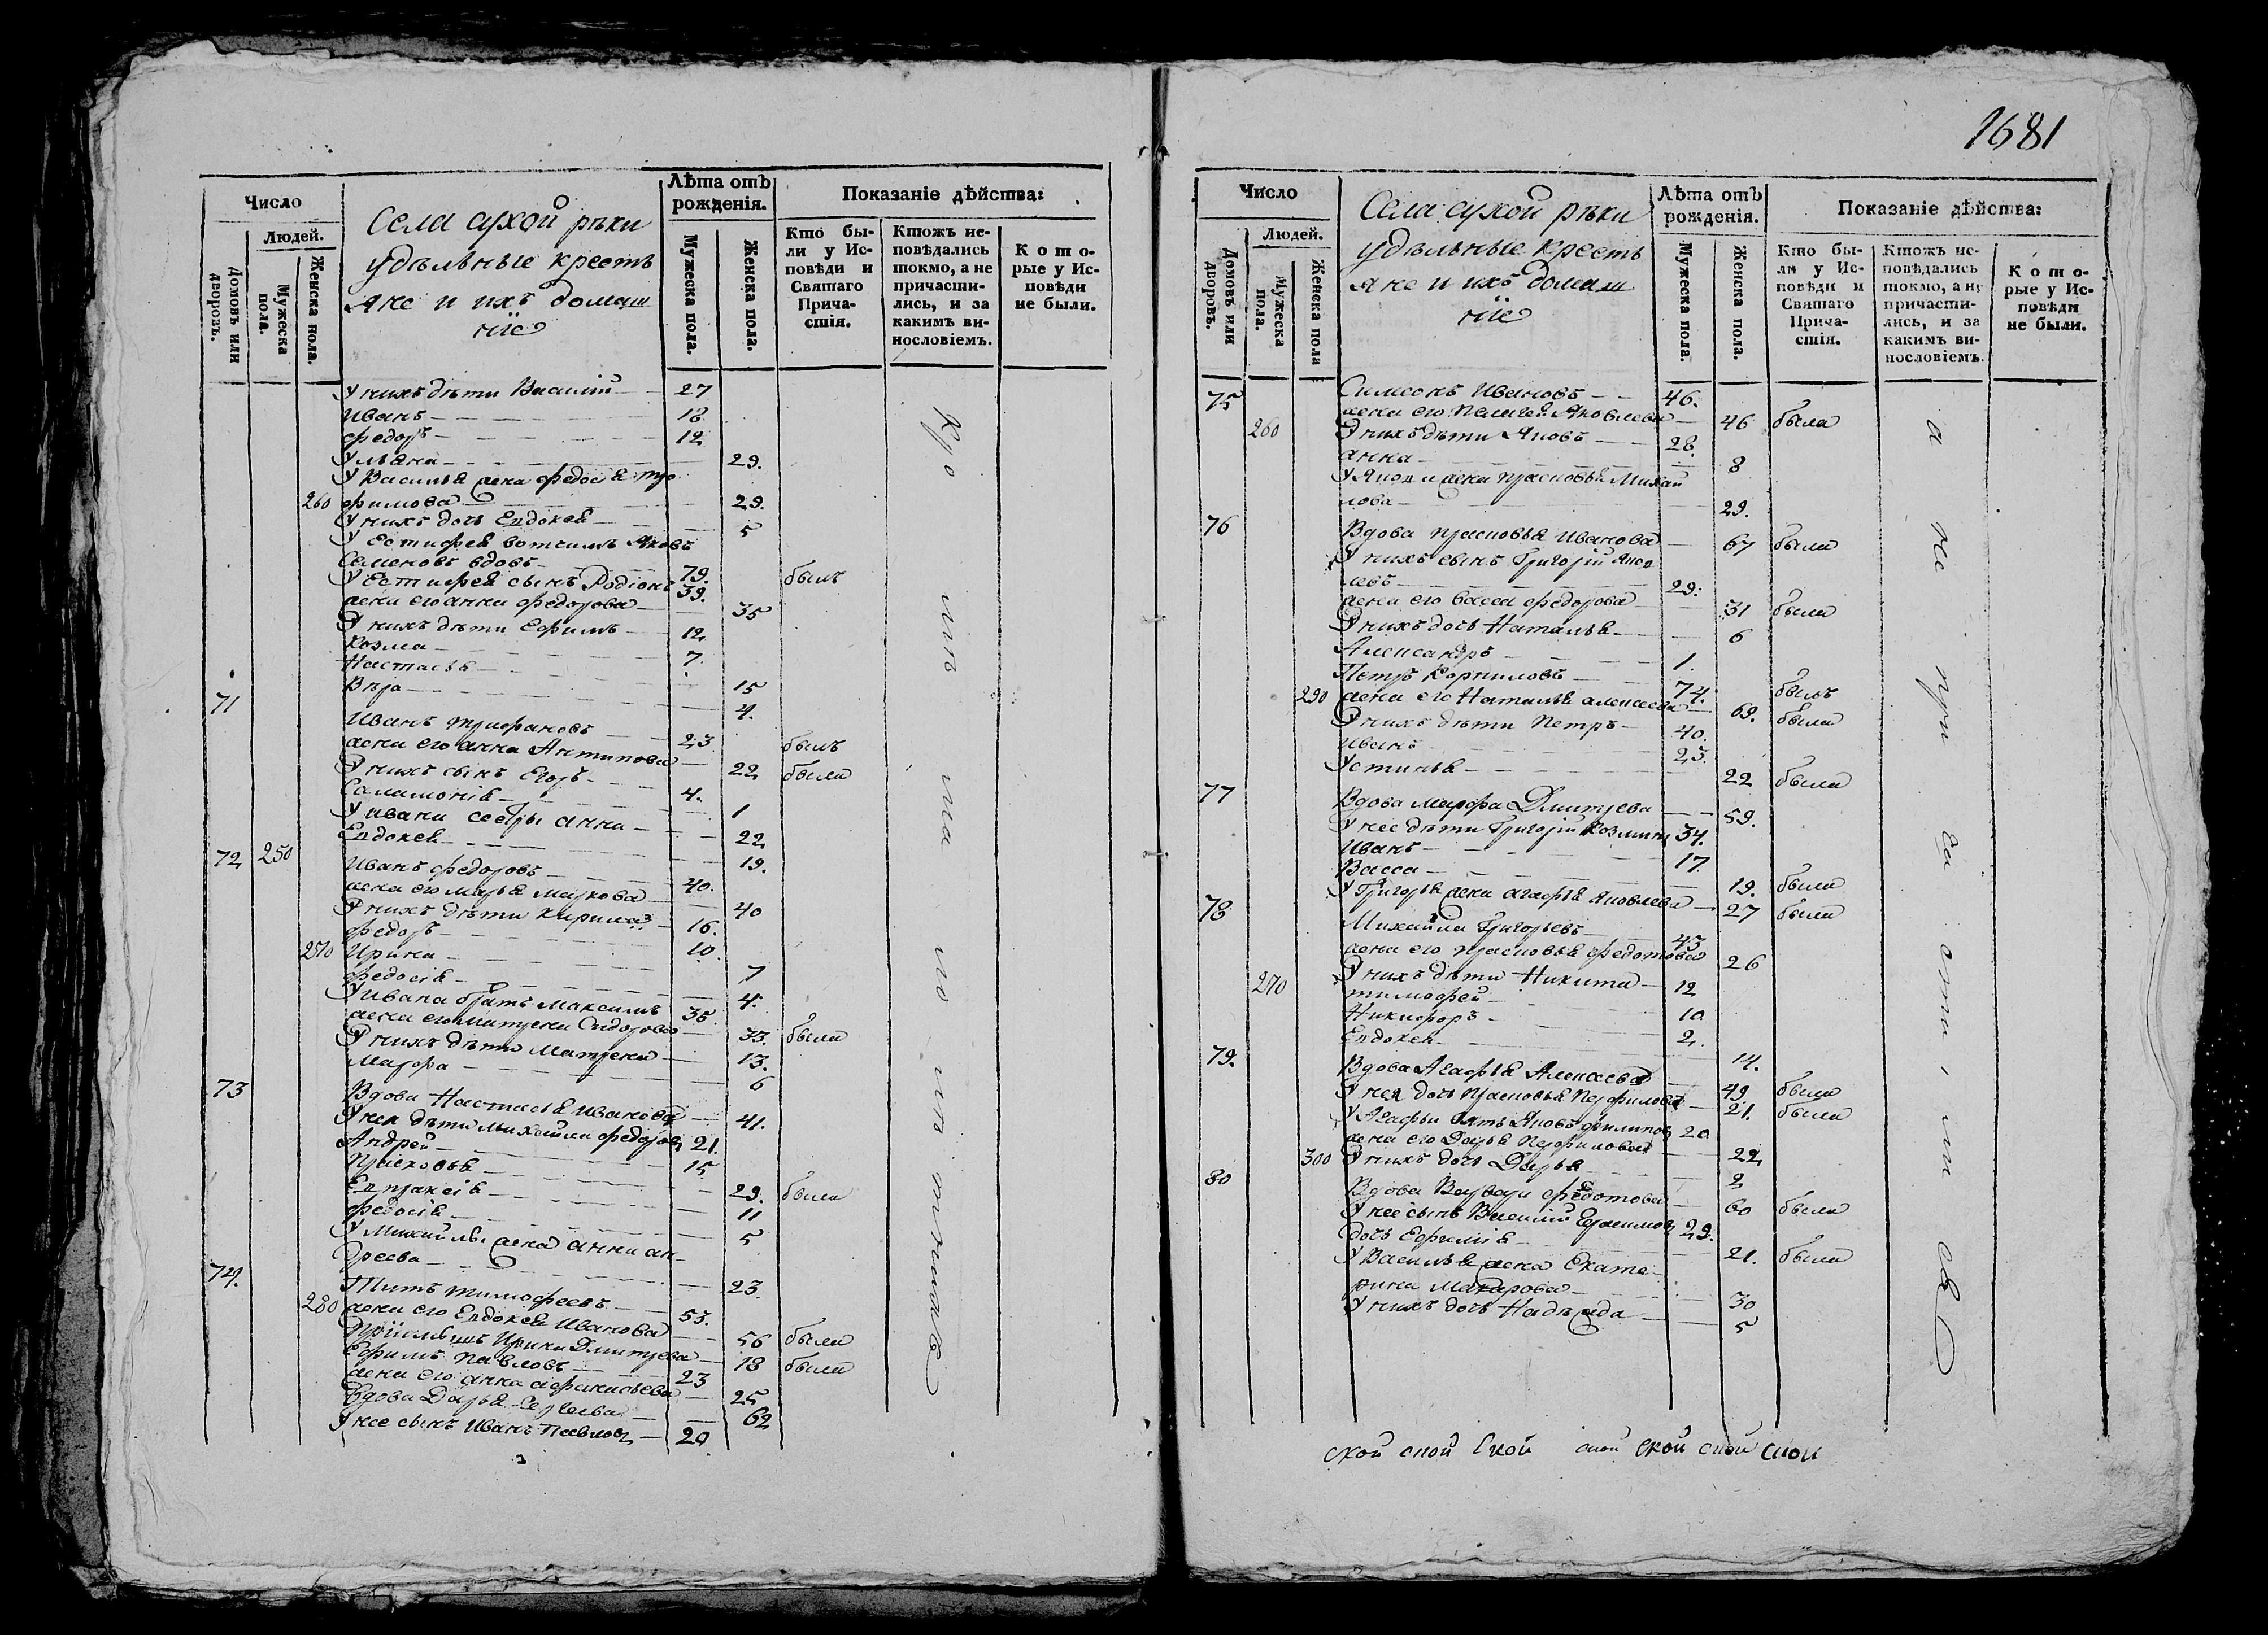 Число
Людей.
Домовъ или дворовъ.
Мужеска пола.
Женска пола.
Села сухой рѣки
удѣльные кресть
яне и ихъ домаш
нiе
Лѣта отъ рожденія.
Мужеска пола.
Женска пола.
Показаніе дѣйства:
Кто бы-
ли у Ис-
повѣди и
Святаго
Прича-
стія.
Ктожъ ис-
повѣдались
токмо, а не
причасти-
лись, и за
какимъ ви-
нословіемъ.
Кото-
рые у Ис-
повѣди
не были.
У нихъ дѣти Василій 27
Иванъ 18
Федоръ 12
Ульяна 29.
У Василья жена Федосья тро
260 фимова 29.
У нихъ дочь Евдокея 5
У Естифея вотчимъ Яковъ
Семеновъ вдовъ 79. былъ
У Естифея сынъ Родіонъ 39.
жена его анна федорова 35
У нихъ дѣти Ефимъ 12
Козма 7.
Настасья 15
Вѣра 4.
71 Иванъ трифановъ 23 былъ
жена его анна Антипова 22 была
У нихъ сынъ Егоръ 4.
Саламонiя 1
У ивана сестры анна 22
Евдокея 19.
72 250 Иванъ федоровъ 40.
жена его марья маркова 40
У нихъ дѣти кирила 16.
федоръ 10.
270 Ирина 7
федосiя 4.
У ивана братъ Максимъ 35
жена его матрена Сидорова 33. была
У нихъ дѣти Матрена 13.
Марфа 6
73 Вдова Настасья иванова 41.
У нея дѣти михайла федоровъ 21.
Андрей 15.
Прасковья 29. была
Евпраксiя 11
федосiя 5
У Михайлы жена анна ан
дреева 23.
74. Титъ тимофеевъ 53.
280 жена его Евдокея иванова 56 была
Прiимышъ Ирина Дмитрева 18 была
Ефимъ Павловъ 23
жена его анна афанасьева 25
Вдова Дарья Сергеева 62
У нее сынъ Иванъ Павловъ 20.
1681
Число
Людей.
Домовъ или дворовъ.
Мужеска пола.
Женска пола
Села сухой рѣки
удѣльные кресть
яне и ихъ домаш
нiе
Лѣта отъ рожденія.
Мужеска пола.
Женска пола.
Показаніе дѣйства:
Кто бы-
ли у Ис-
повѣди и
Святаго
Прича-
стія.
Ктожъ ис-
повѣдались
токмо, а не
причасти-
лись, и за
какимъ ви-
нословіемъ.
Кото-
рые у Ис-
повѣди
не были.
75 Симеонъ Ивановъ 46.
жена его Пелагея Яковлева 46 была
260 У нихъ дѣти Яковъ 28.
анна 8
У Якова жена прасковья Михай
лова 29.
76 Вдова прасковья иванова 67 была
У нихъ сынъ Григорiй Яков
левъ 29.
жена его васса федорова 31 была
У нихъ дочь Наталья 6
Александръ 1.
Петръ Корниловъ 74. былъ
290 жена его Наталья алексеева 69. была
У нихъ дѣти Петръ 40.
иванъ 23.
Устинья 22 была
77 Вдова марфа Дмитрева 59.
У нее дѣти Григорiй Козминъ 34.
Иванъ 17.
Васса 19. была
У Григорья жена агафья яковлева 27 была
78 Михайла Григорьевъ 43
жена его прасковья федотова 26
У нихъ дѣти Никита 12
270 тимофей 10
Никифоръ 2.
Евдокея 14.
79. Вдова Агафья Алексеева 49 была
У нея дочь Прасковья Перфилова 21. была
У Агафьи зять Яковъ филиповъ 20
жена его Дарья Перфилова 22
300 У нихъ дочь Дарья 2
80 Вдова Варвара федотова 60 была
У нее сынъ Василiй Герасимовъ 29.
дочь Ефимiя 21. была
У Василья жена Екате
рина Макарова 30
У нихъ дочь Надежда 5
ской ской Ской ской ской ской ской